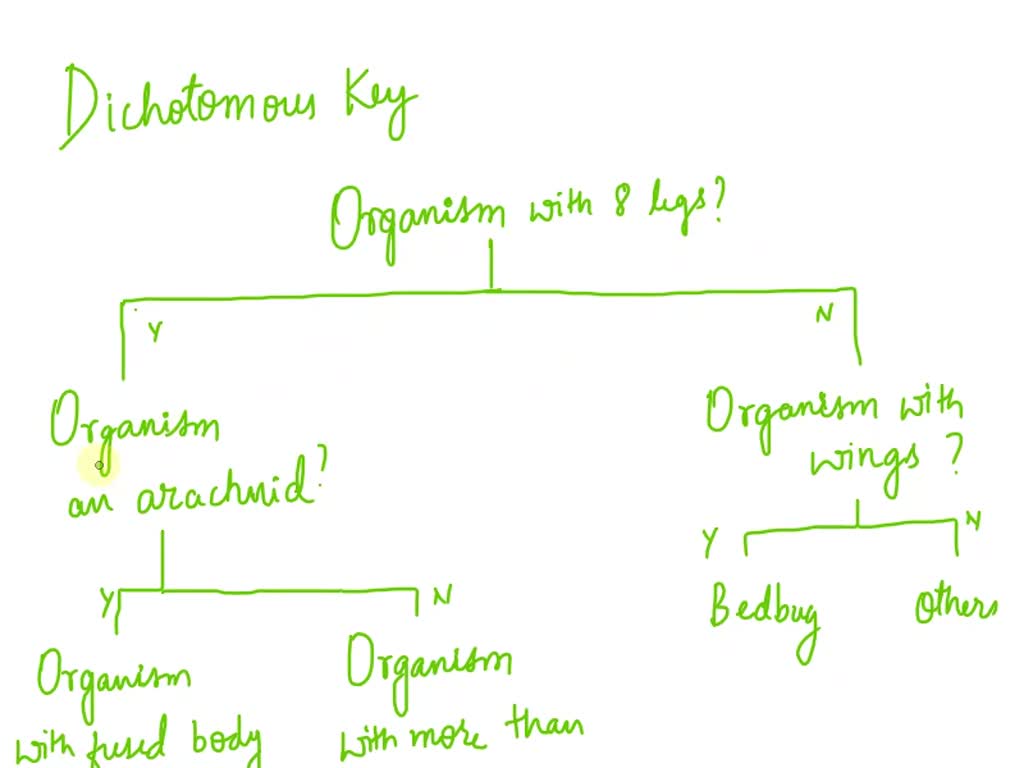 Dichotomous Key
Organism with 8 legs?
Y
N
Organism
an arachnid?
Organism with
wings ?
Y
N
Y
N
Bedbug
Others
Organism
with fused body
Organism
with more than